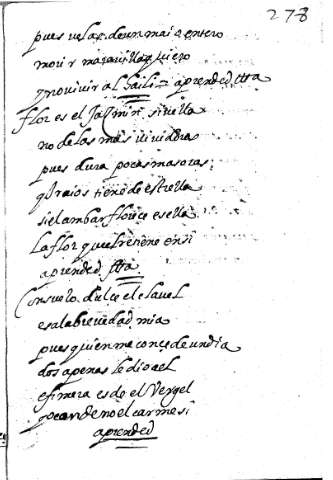 278
pues ve las de un maio entero
morir maravilla quiero
y no vivir alhaili aprended ettra
flor es el Jazmin si vella
no de las mas vividoras
pues dura pocas mas oras
q raios tiene de estrella
si el ambar florece es ella
la flor que el retiene en si
aprended ettra
Consuelo dulce el clavel
es a la brevedad mia
pues quien me conçede un dia
dos apenas le dio a el
efimera es de el Vergel
carmesi
aprended